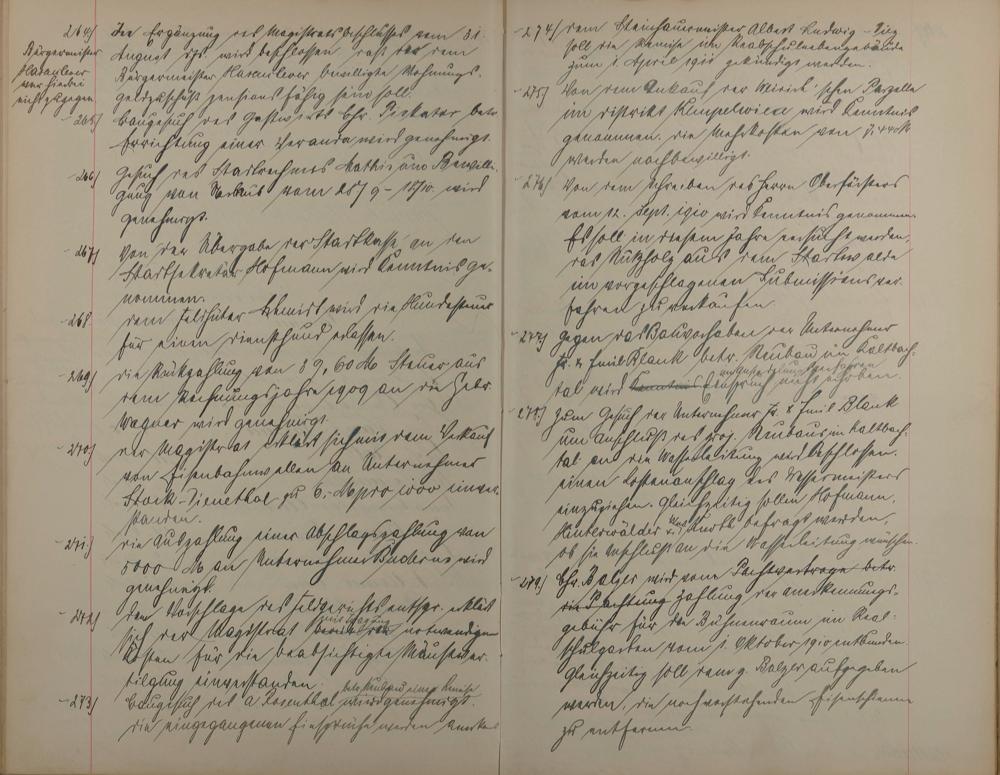 264)
Bürgermeister
Hasenclever
war hierbei
nicht zugegen
In Ergänzung des Magistratsbeschlusses vom 31.
August ds. wird beschlossen, daß der dem
Bürgermeister Hasenclever bewilligte Wohnungs-
geldzuschuß pensionsfähig sein soll.
265) Baugesuch des Gastwirts Chr. Piskator betr.
Errichtung einer Veranda wird genehmigt.
266) Gesuch des Stadtrechners Mathis um Bewilli-
gung von Urlaub vom 25/9 - 15/10 wird
genehmigt.
267) Von der Übergabe der Stadtkasse an den
Stadtsekretär Hofmann wird Kenntnis ge-
nommen.
268 Dem Feldhüter Schmidt wird die Hundesteuer
für einen Diensthund erlassen.
269) Die Rückzahlung von 39,60 M Steuer aus
dem Rechnungsjahre 1909 an die Gebr.
Wagner wird genehmigt.
270) Der Magistrat erklärt sich mit dem Verkauf
von Eisenbahnwellen an Unternehmer
Stock - Dienethal zu 6.- M pro 1000 einver-
standen.
271) Die Auszahlung einer Abschlagszahlung von
5000 M an Unternehmer Buderus wird
genehmigt.
272) Dem Vorschlage des Feldgerichts entspr. erklärt
sich der Magistrat notwendigen
Kosten für die beabsichtigte Mäusever-
tilgung einverstanden.
273) Baugesuch des A Rosenthal betr. eine Remise wird genehmigt.
Die eingegangenen Einsprüche werden
274) Dem Steinhauermeister Albert Ludwig
soll die Remise im Realschulnebengebäude
zum 1. April 1911 gekündigt werden.
275) Von dem Ankauf der schen Parzelle
im Distrikt wird Kenntnis
genommen. Die Mehrkosten von M
werden nachbewilligt.
276) Von dem Schreiben des Herrn Oberförsters
vom 12. Sept. 1910 wird Kenntnis genommen.
Es soll in diesem Jahre versucht werden,
das Nutzholz aus dem Stadtwalde
im vorgeschlagenen Submissionsver-
fahren zu verkaufen.
277) Gegen das Bauvorhaben der Unternehmer
Fr. & Emil Blank betr. Neubau im Kaltbach-
tal wird Kenntnis im Ansiedlungsverfahren Einspruch nicht erhoben.
278.) Zum Gesuch der Unternehmer Fr. & Emil Blank
um Anschluß des proj. Neubaus im Kaltbach-
tal an die Wasserleitung wird beschlossen.
einen Kostenanschlag des Wassermeisters
einzuziehen. Gleichzeitig sollen Hofmann,
Hinterwälder und befragt werden,
ob sie Anschluß an die Wasserleitung wünschen.
279.) Chr. Balzer wird vom Pachtvertrage betr.
die Pachtung Zahlung der Anerkennungs-
gebühr für den Bühnenraum im Real-
schulgarten vom 1. Oktober 1910 entbunden.
Gleichzeitig soll dem g. Balzer aufgegeben
werden, die noch vorstehenden Eisenschienen
zu entfernen.